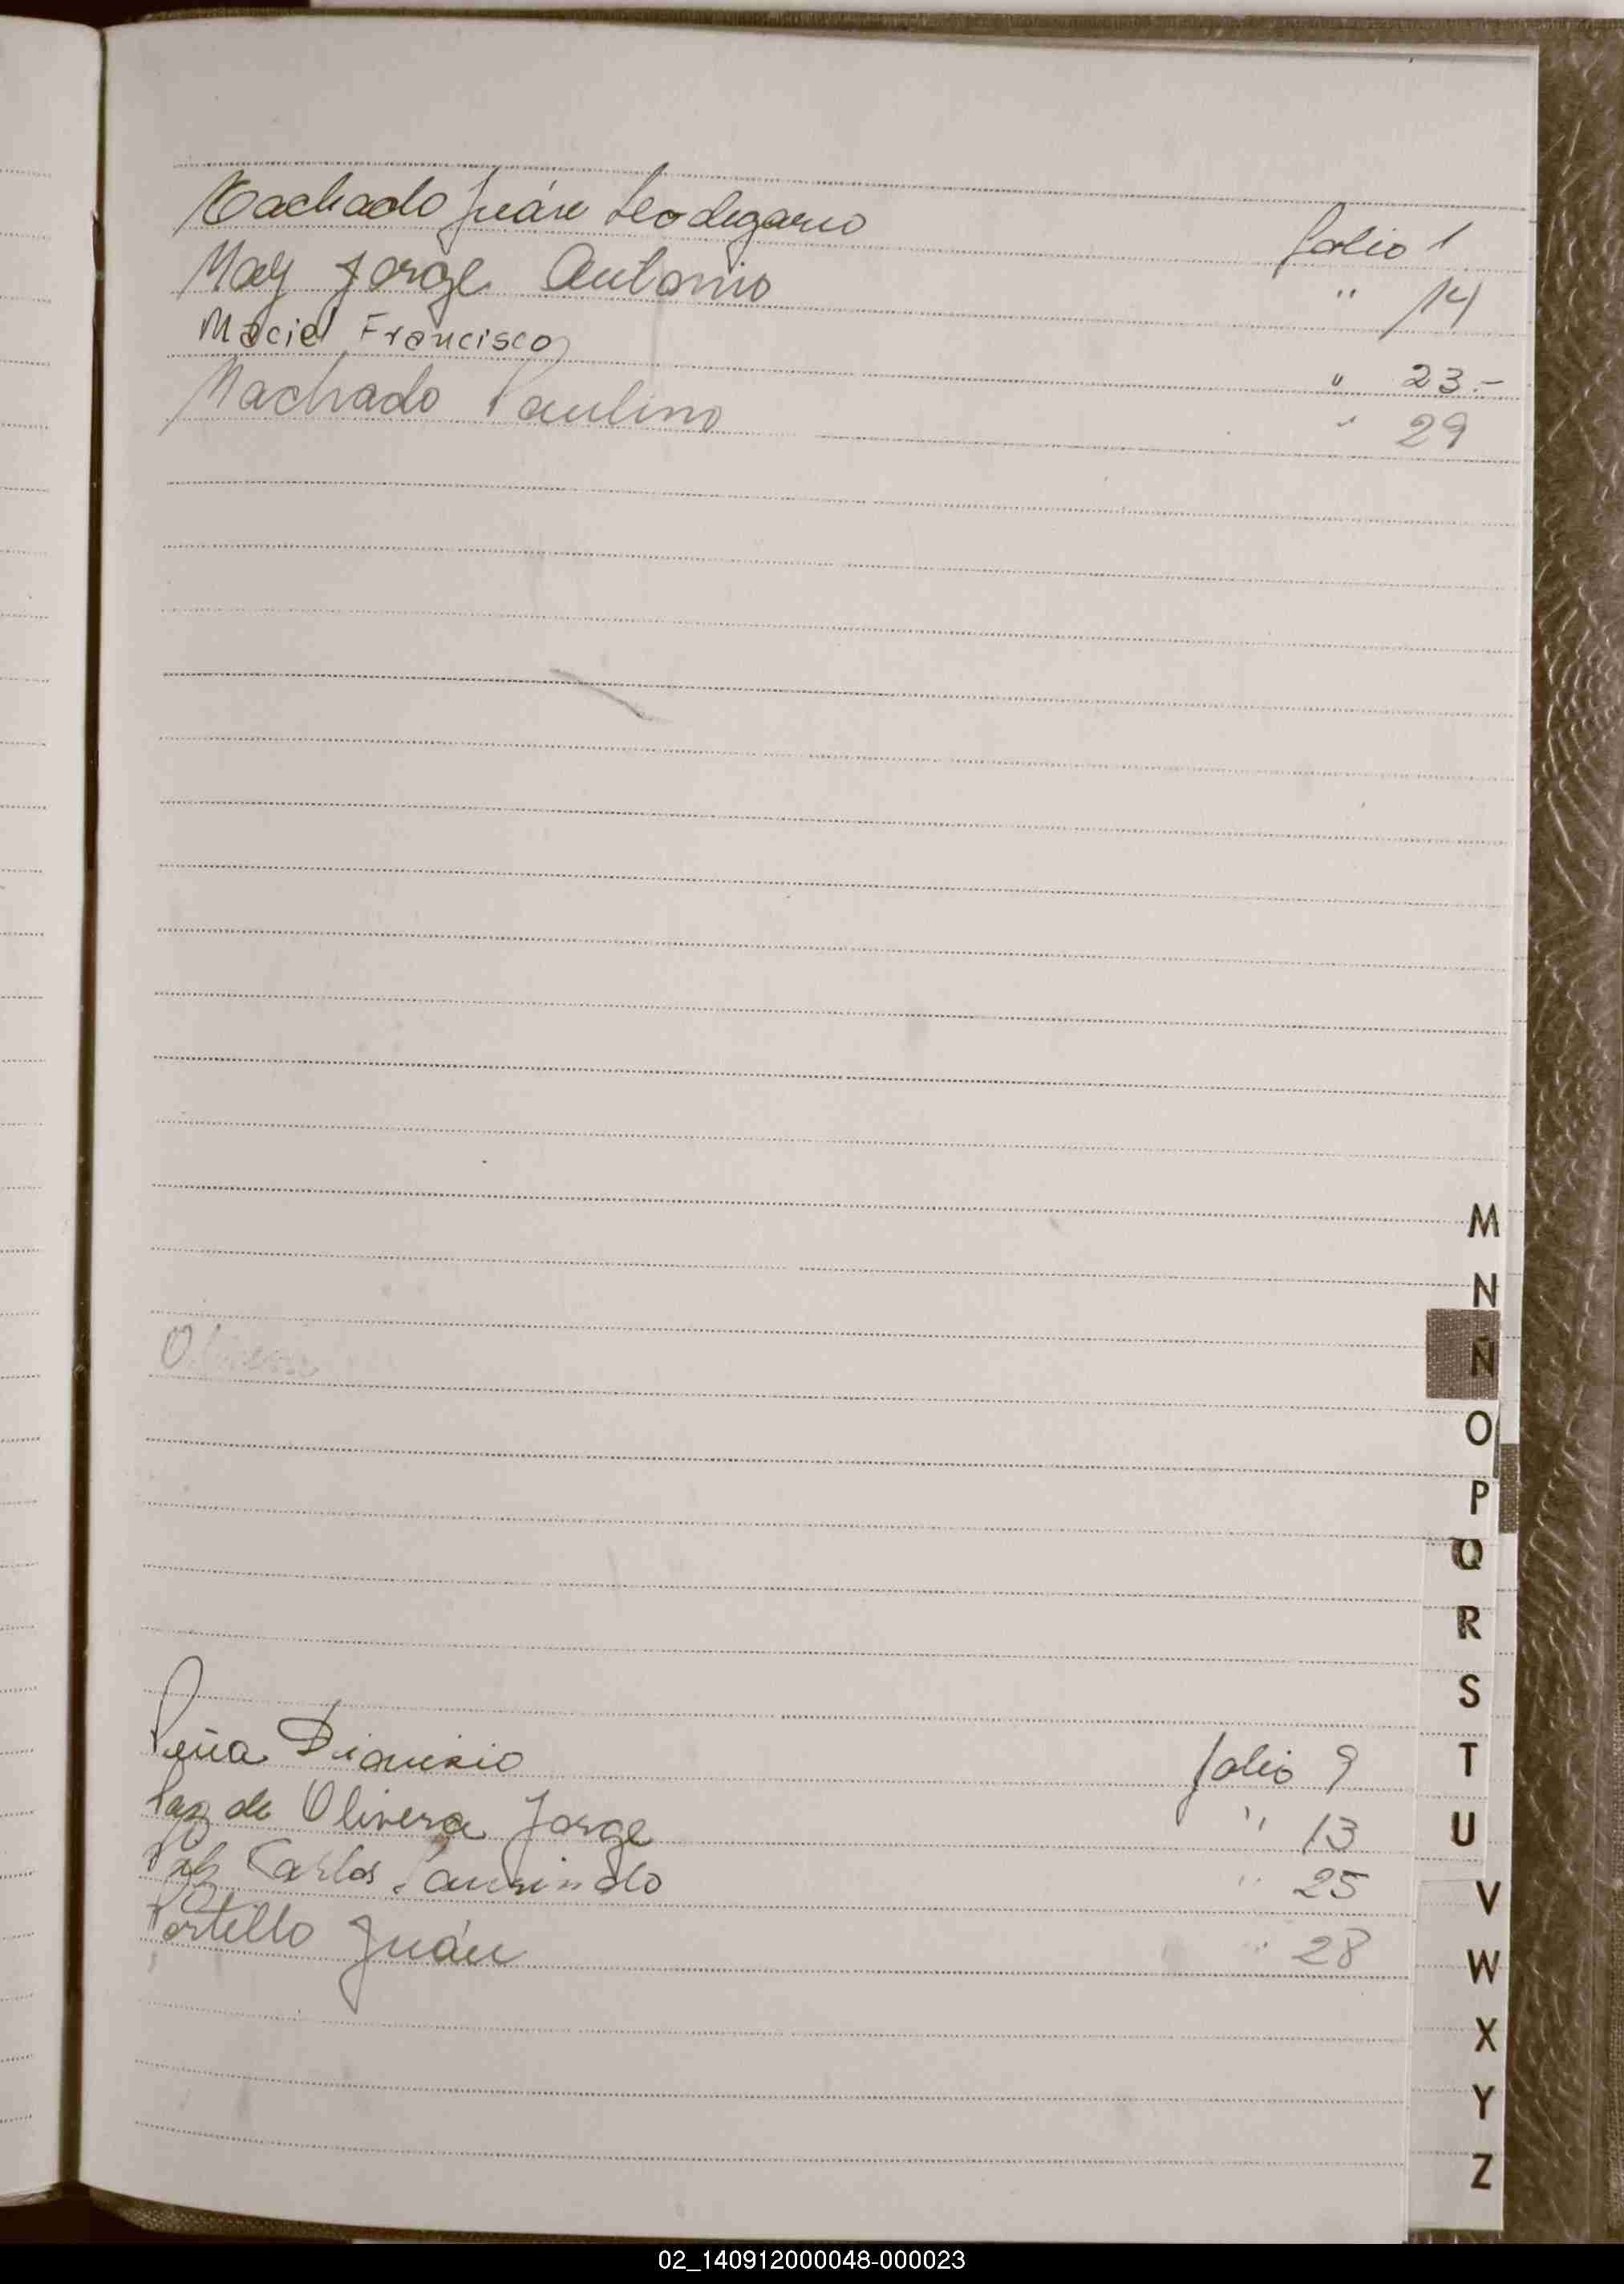 Machado Juán Leodegario folio 1
May Jorge Antonio " 14
Maciel Francisco " 23.-
Machado Paulino " 29
Olivera
Peña Dionisio folio 9
Paz de Olivera Jorge " 13
Paz Carlos " 25
Portello Juán " 28
M
N
Ñ
O
P
Q
R
S
T
U
V
W
X
Y
Z
02_140912000048-000023